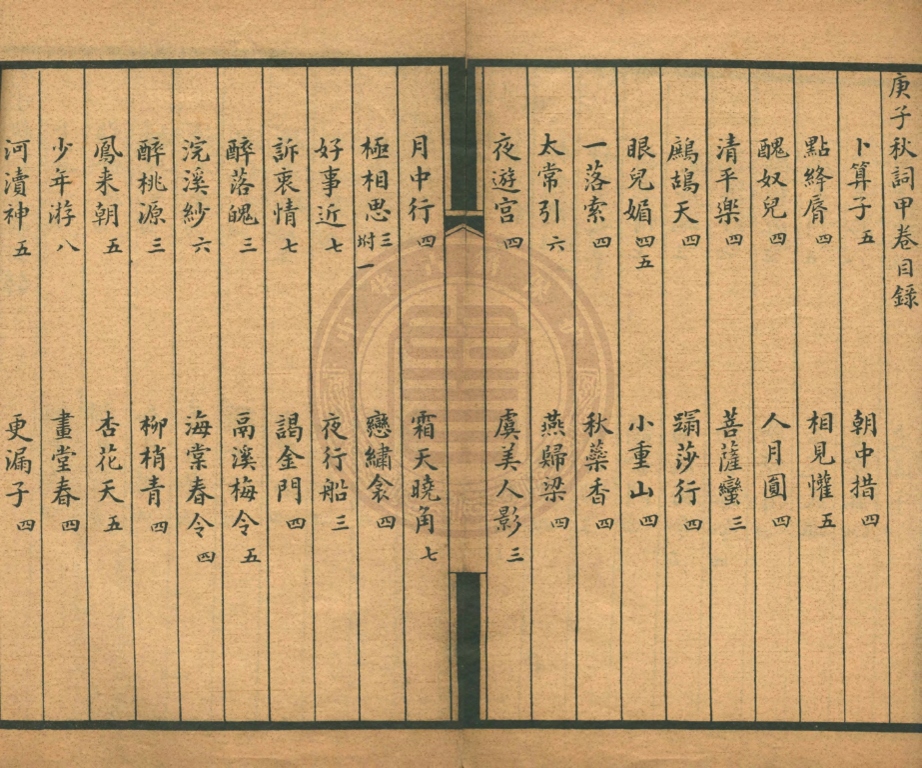 庚子秋詞甲卷目錄
卜算子五 朝中措四
點絳脣四 相見懽五
醜奴兒四 人月圓四
清平樂四 菩薩蠻三
鷓鴣天四 蹋莎行四
眼兒媚四五 小重山四
一落索四 秋蘂香四
太常引六 燕歸梁四
夜遊宮四 虞美人影三
月中行四 霜天曉角七
極相思三坿一 戀繡衾四
好事近七 夜行船三
訴衷情七 謁金門四
醉落魄三 鬲溪梅令五
浣溪紗六 海棠春令四
醉桃源三 柳梢青四
鳳来朝五 杏花天五
少年游八 畫堂春四
河瀆神五 更漏子四